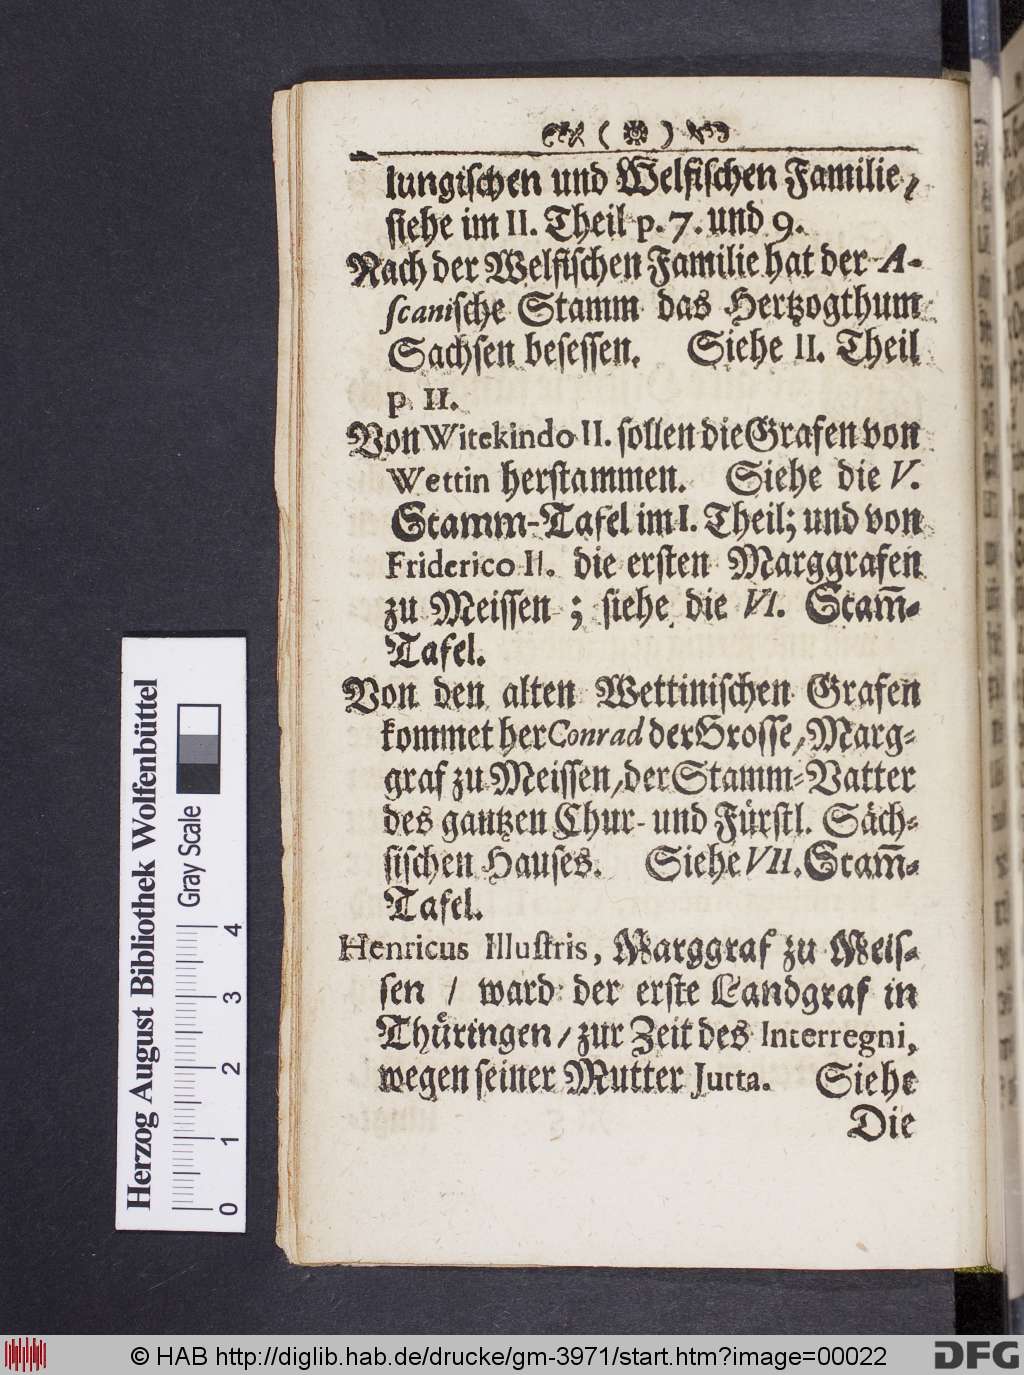 ( )
lungischen und Welfischen Familie,
siehe im II. Theil p. 7. und 9.
Nach der Welfischen Familie hat der A-
scanische Stamm das Hertzogthum
Sachsen besessen. Siehe II. Theil
p. II.
Von Witekindo II. sollen die Grafen von
Wettin herstammen. Siehe die V.
Stamm-Tafel im I. Theil; und von
Friderico II. die ersten Marggrafen
zu Meissen ; siehe die VI. Stam̅-
Tafel.
Von den alten Wettinischen Grafen
kommet her Conrad der Grosse/ Marg-
graf zu Meissen/ der Stamm-Vatter
des gantzen Chur- und Fürstl. Säch-
sischen Hauses. Siehe VII. Stam̅-
Tafel.
Henricus Illustris, Marggraf zu Meis-
sen / ward der erste Landgraf in
Thüringen / zur Zeit des Interregni,
wegen seiner Mutter Jutta. Siehe
Die
Herzog August Bibliothek Wolfenbüttel
Gray Scale
0 1 2 3 4
© HAB http://diglib.hab.de/drucke/gm-3971/start.htm?image=00022
DFG